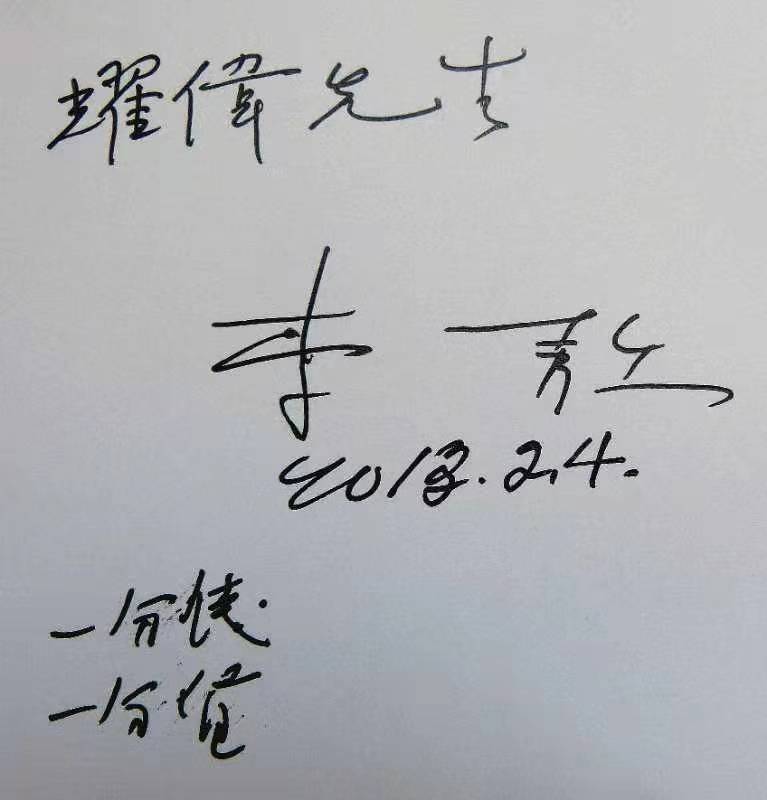 耀偉先生
李敖
2013.2.4.
一分錢
一分貨